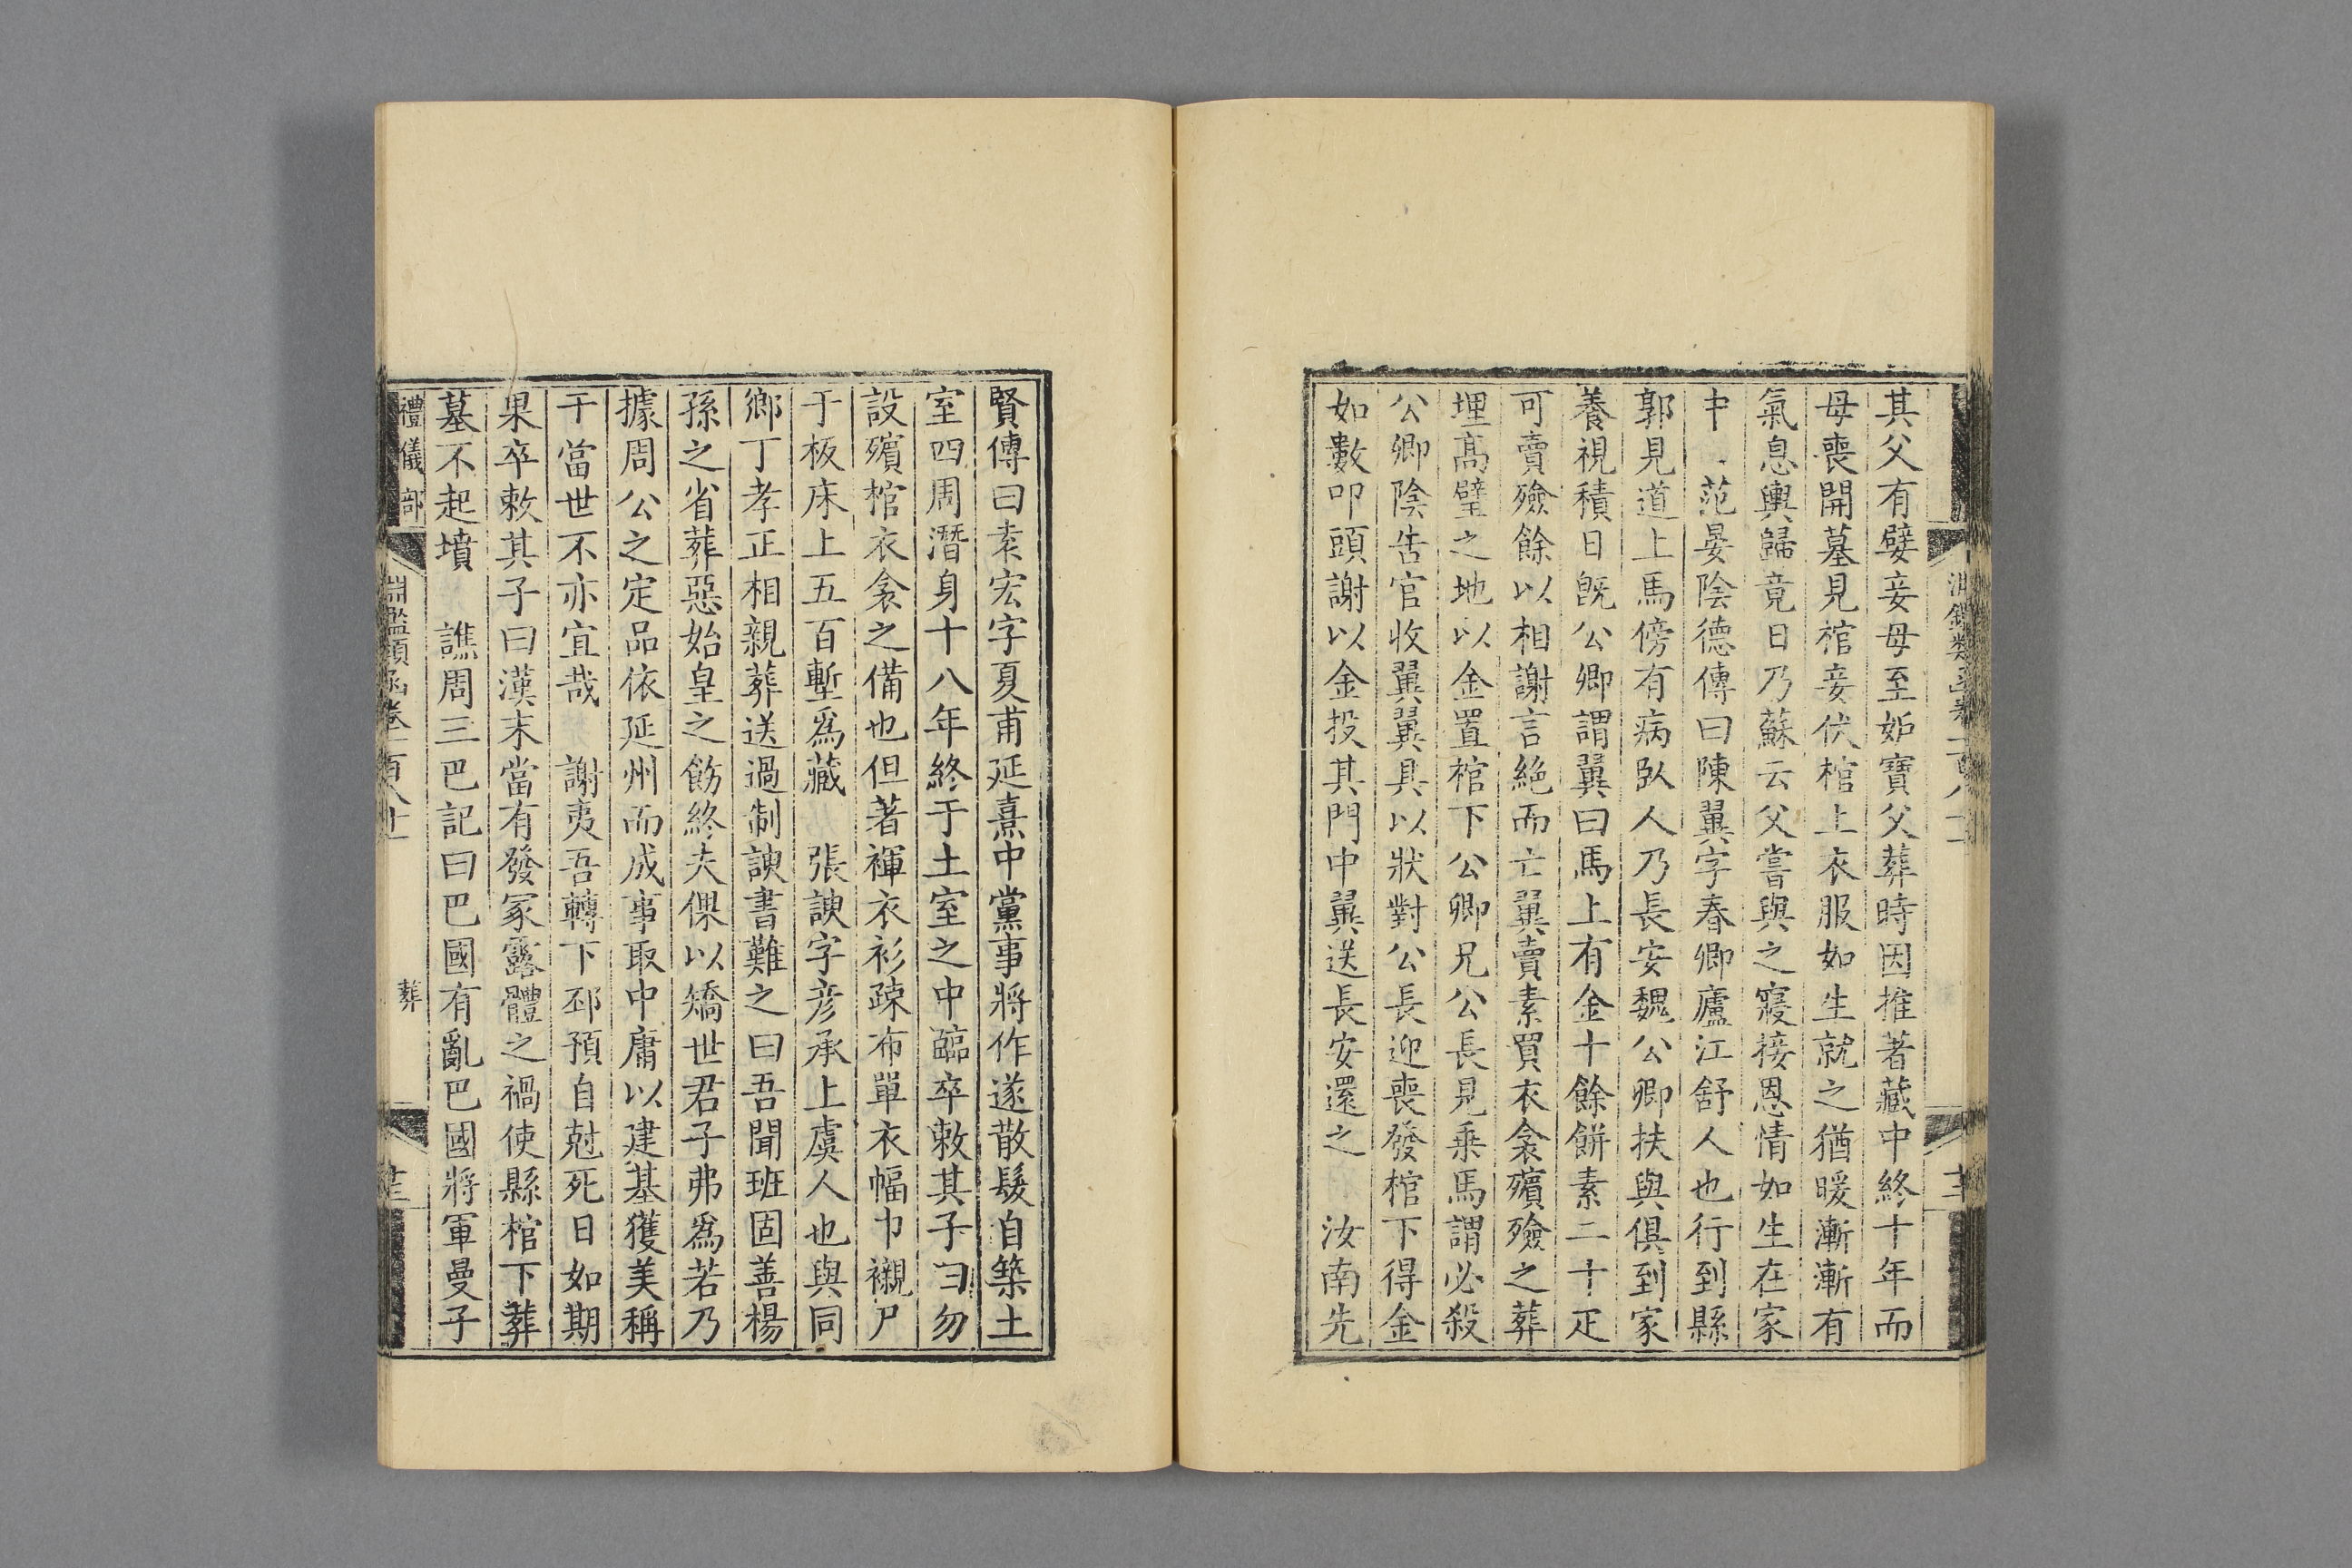 其父有嬖妾母至妒寶父葬時因推著藏中終十年而
母喪開墓見棺妾伏棺上衣服如生就之猶暖漸漸有
氣息輿歸竟日乃蘇云父嘗與之寢接恩情如生在家
中 范晏陰德傳曰陳翼字春卿廬江舒人也行到縣
郭見道上馬傍有病臥人乃長安魏公卿扶與俱到家
養視積日旣公卿謂翼曰馬上有金十餘餅素二十疋
可賣殮餘以相謝言絕而亡翼賣素買衣衾殯殮之葬
埋高壁之地以金置棺下公卿兄公長見乗馬謂必殺
公卿陰告官收翼翼具以狀對公長迎喪發棺下得金
如數叩頭謝以金投其門中翼送長安還之 汝南先
賢傳曰袁宏字夏甫延熹中黨事將作遂散髮自築土
室四周潛身十八年終于土室之中臨卒敕其子曰勿
設殯棺衣衾之備也但著褌衣衫疎布單衣幅巾襯尸
于板床上五百墼爲藏 張諛字彦承上虞人也與同
鄉丁孝正相親葬送過制諛書難之曰吾聞班固善楊
孫之省葬惡始皇之飭終夫倮以矯世君子弗爲若乃
據周公之定品依延州而成事取中庸以建基獲美稱
干當世不亦宜哉 謝夷吾轉下邳預自尅死日如期
果卒敕其子曰漢末當有發冢露體之禍使縣棺下葬
墓不起墳 譙周三巴記曰巴國有亂巴國將軍曼子
禮儀部 淵鑑類函卷一百八十一 葬